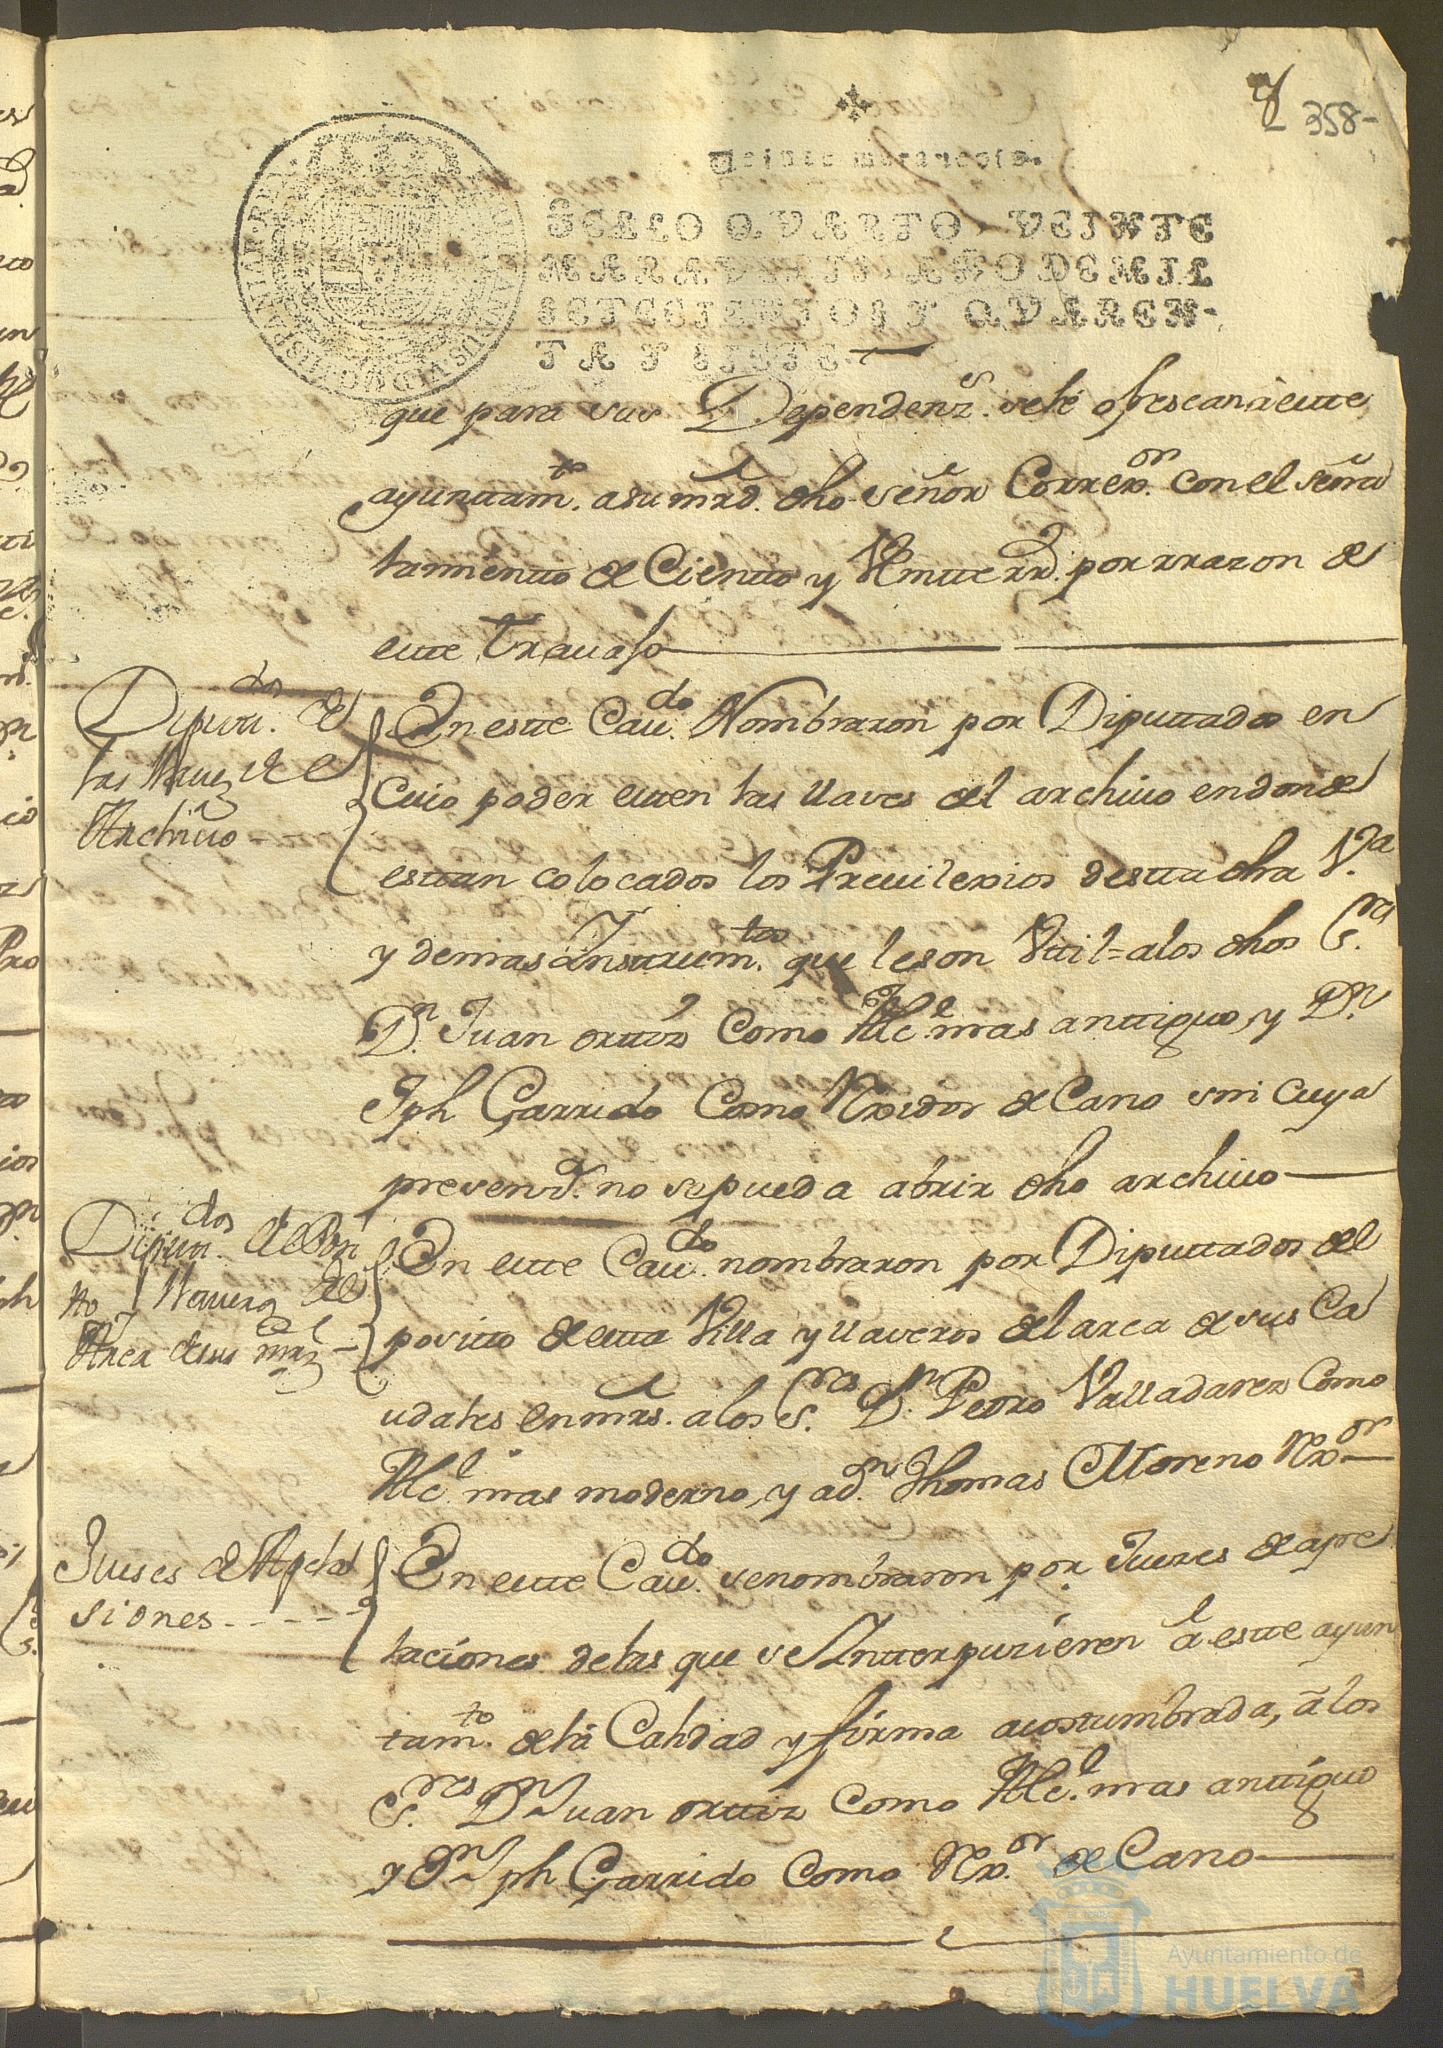 358-
Veinte maravedis.
SELLO QVARTO, VEINTE
MARAVEDIS, AÑO DE MIL
SETECIENTOS Y QVAREN-
TA Y SIETE.
que para sus Dependenz.s sele ofrescan à este
ayunttam.to a su mrd. dho señor Correx.or con el señala
lamiento de Ciento y Veintte rr.d por rrazon de
este Travajo
Diputt.dos de
las llaves de el
Archivo
En estte Cav.do Nombraron por Diputtados en
Cuio poder esten las llaves del archivo en donde
esttan colocados los Previlexios destta dha V.a
y demas Ynstrum.tos que le son Vttil= a los dhos S.res
D.n Juan orttiz como Alc.e mas anttiguo, y D.n
Jph Garrido Como Rexidor decano sin cuya
presenz.a no se pueda abrir dho archivo
Diputt.dos del Posi
to y llaveros del
Arca de sus mrs
En este Cav.do nombraron por Diputtados del
posito de esta Villa y llaveros del arca de sus Ca
udales en mrs. a los S.res D.n Pedro Valladares Como
Alc.e mas moderno, y a d.n Thomas Moreno Rex.or
Jueses de Apela
siones
En este Cav.do se nombraron por Jueces de ape
laciones de las que se Ynterpusieren a este ayun
tam.to de la Calidad y forma acostumbrada, à los
S.res D.n Juan orttiz como Alc.e mas anttiguo
y D.n Jph Garrido Como Rex.or de Cano
Ayuntamiento de
HUELVA